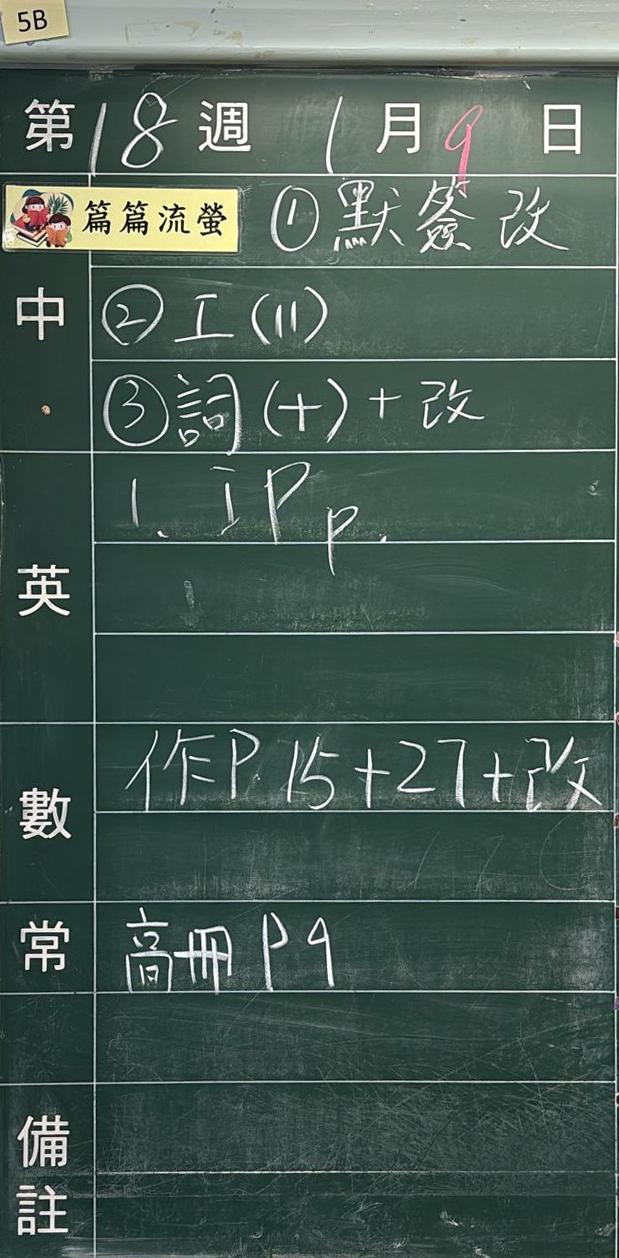 5B
第18週 1月9日
篇篇流螢 ①默簽改
中
②工(11)
③詞(十)+改
英
1. IP p.
數
作P.15+27+改
常
高冊P9
備註